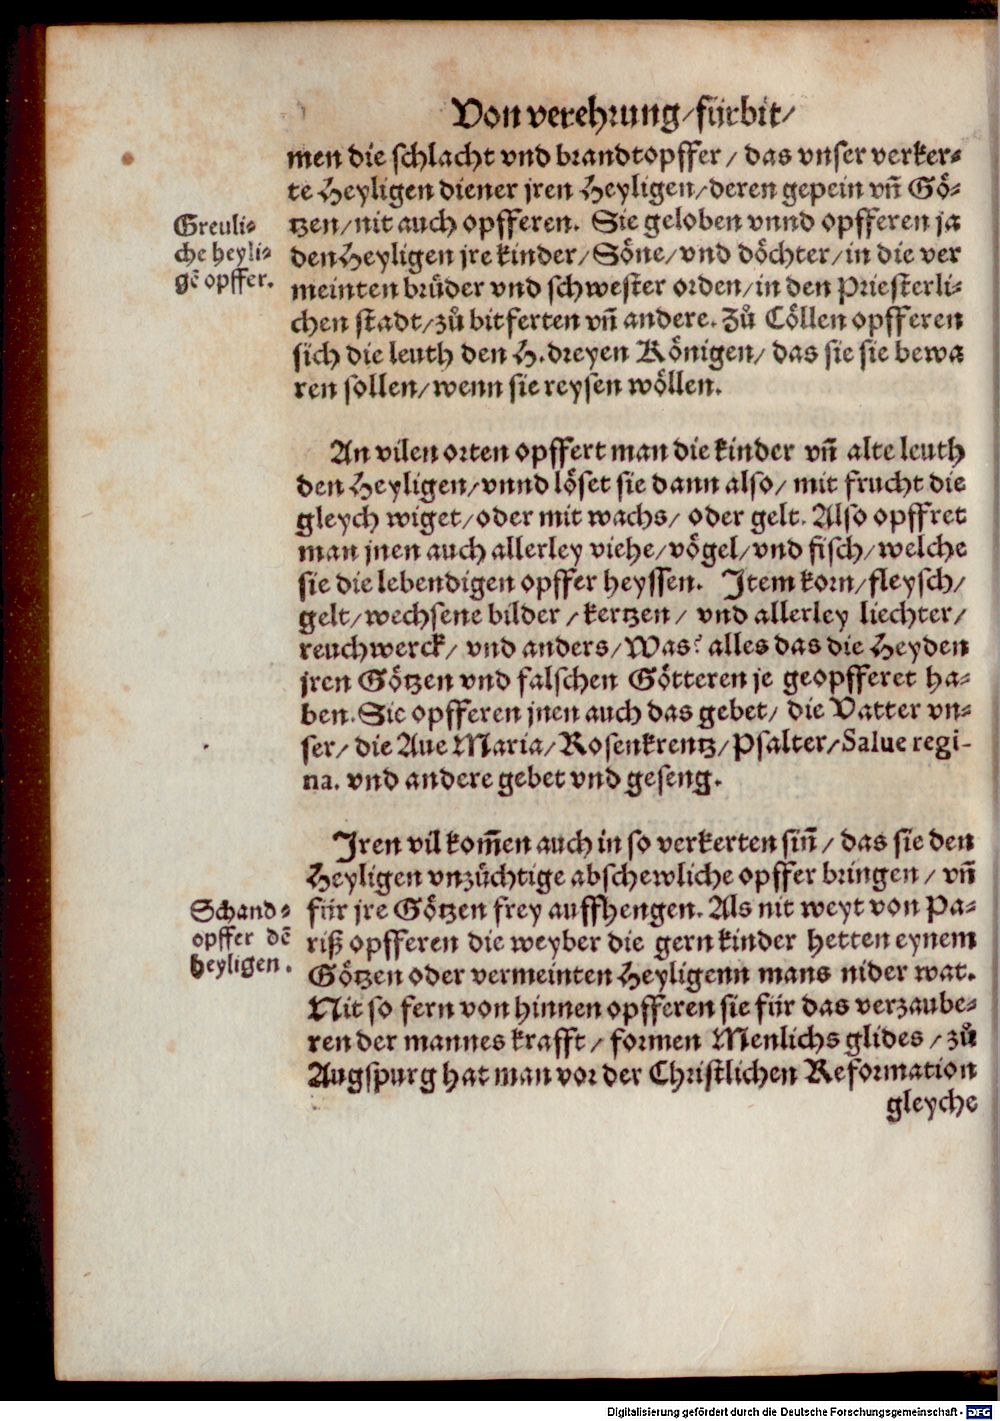 Von verehrung/fürbit/
men die schlacht vnd brandtopffer / das vnser verker⸗
te Heyligen diener jren Heyligen/deren gepein vñ Gö⸗
tzen/nit auch opfferen. Sie geloben vnnd opfferen ja
den Heyligen jre kinder/Söne/vnd döchter/in die ver
meinten brüder vnd schwester orden/in den Priesterli⸗
chen stadt/zů bitferten vñ andere. Zů Cöllen opfferen
sich die leuth den H. dreyen Königen/ das sie sie bewa
ren sollen/wenn sie reysen wöllen.
Greuli⸗
che heyli⸗
gẽ opffer.
An vilen orten opffert man die kinder vñ alte leuth
den Heyligen/vnnd löset sie dann also/ mit frucht die
gleych wiget/oder mit wachs/ oder gelt. Also opffret
man jnen auch allerley viehe/vögel/vnd fisch/welche
sie die lebendigen opffer heyssen. Item korn/fleysch/
gelt/wechsene bilder / kertzen / vnd allerley liechter/
reuchwerck/ vnd anders/Was? alles das die Heyden
jren Götzen vnd falschen Götteren je geopfferet ha⸗
ben. Sie opfferen jnen auch das gebet/ die Vatter vn⸗
ser/ die Aue Maria/Rosenkrentz/Psalter/Salue regi-
na. vnd andere gebet vnd geseng.
Jren vil kom̃en auch in so verkerten siñ / das sie den
Heyligen vnzüchtige abschewliche opffer bringen / vñ
für jre Götzen frey auffhengen. Als nit weyt von Pa⸗
riß opfferen die weyber die gern kinder hetten eynem
Götzen oder vermeinten Heyligenn mans nider wat.
Nit so fern von hinnen opfferen sie für das verzaube⸗
ren der mannes krafft / formen Menlichs glides / zů
Augspurg hat man vor der Christlichen Reformation
Schand⸗
opffer dẽ
heyligen.
gleyche
Digitalisierung gefördert durch die Deutsche Forschungsgemeinschaft - DFG